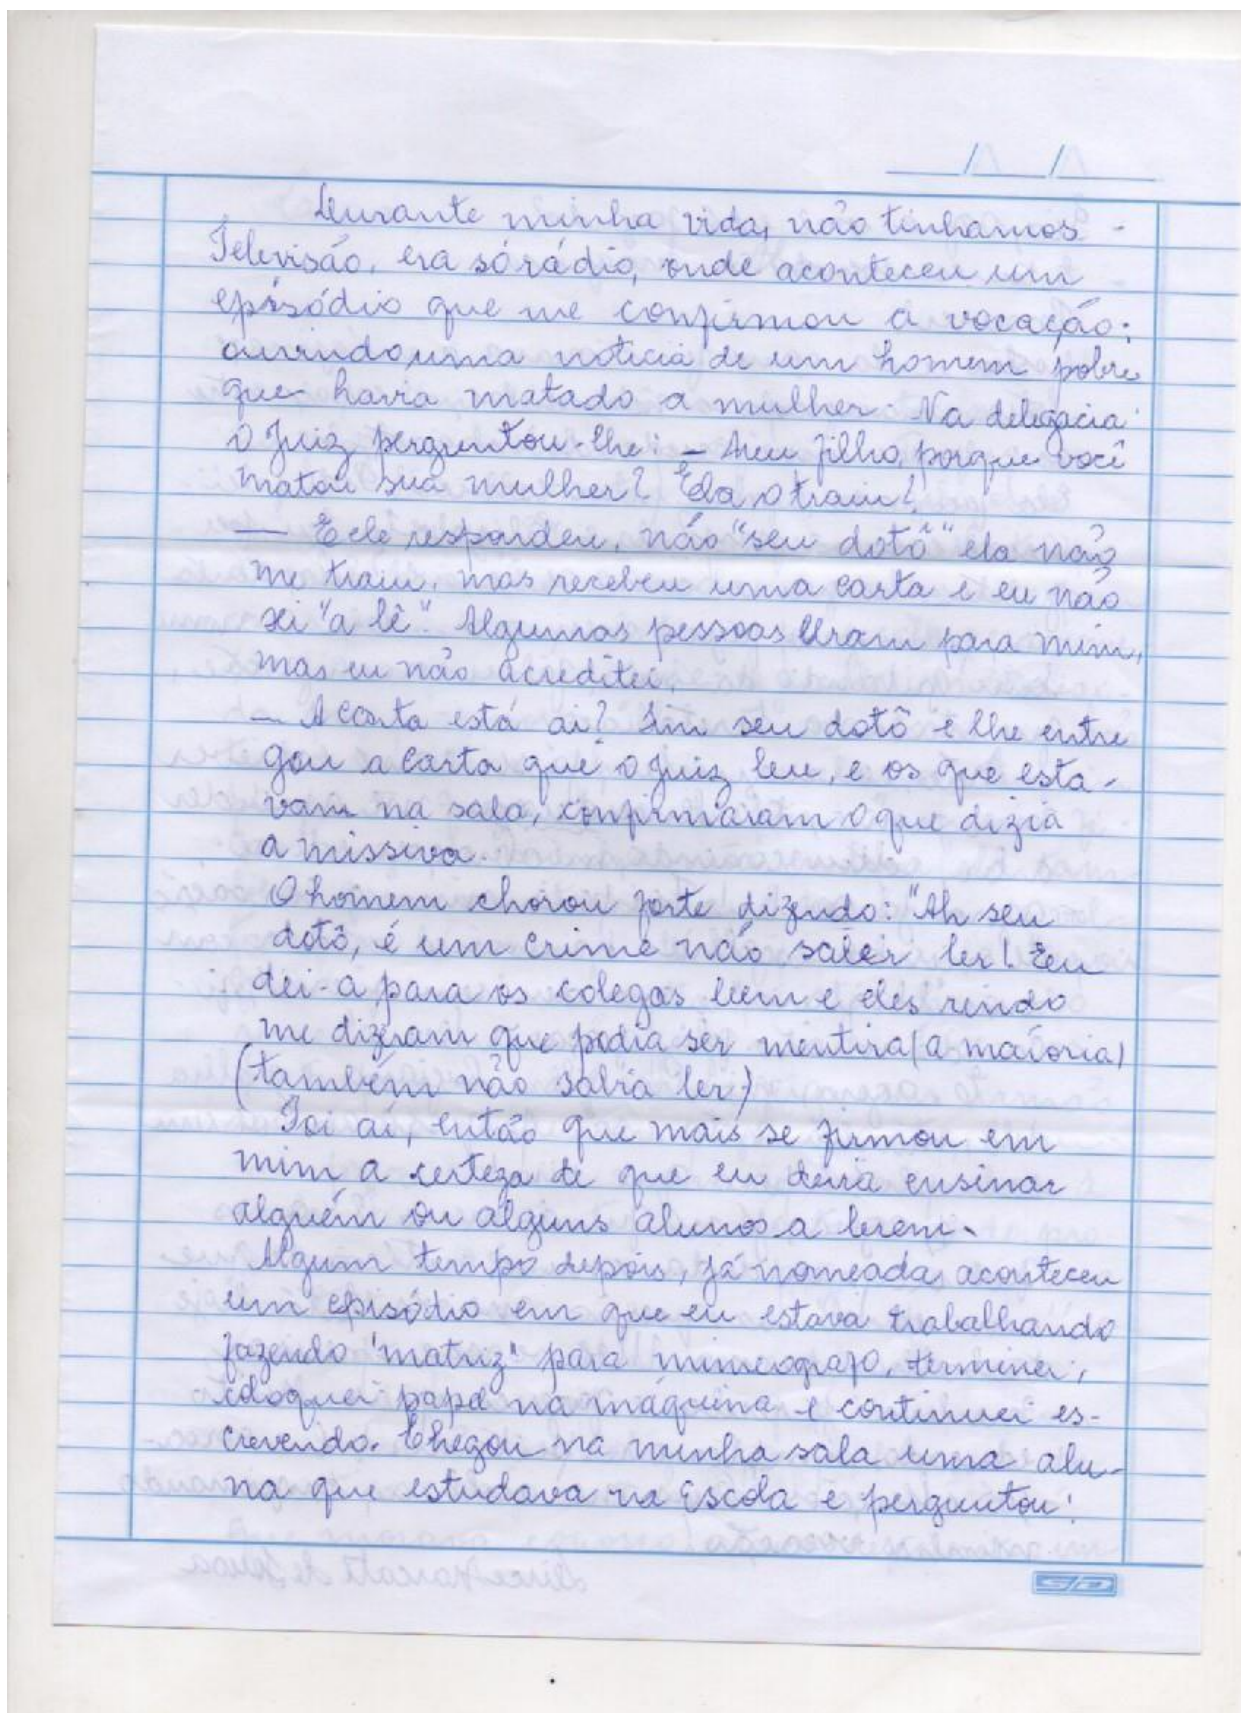 Durante minha vida, não tinhamos -
Televisão, era só rádio, onde aconteceu um
episódio que me confirmou a vocação:
ouvindo, uma noticia de um homem pobre
que havia matado a mulher. Na delegacia
o Juiz perguntou-lhe: - Meu filho, porque você
matou sua mulher? Ela o traiu?
— E ele respondeu, não "seu dotô" ela não
me traiu, mas recebeu uma carta e eu não
sei "a lê". Algumas pessoas leram para mim,
mas eu não acreditei.
- A carta está ai? Sim seu dotô e lhe entre
gou a carta que o Juiz leu, e os que esta-
vam na sala, confirmaram o que dizia
a missiva.
O homem chorou forte dizendo: "Ah seu
dotô, é um crime não saber ler! Eu
dei-a para os colegas lerem e eles rindo
me dizeram que podia ser mentira (a maioria)
(também não sabia ler)
Foi aí, então que mais se firmou em
mim a certeza de que eu devia ensinar
alguém ou alguns alunos a lerem.
Algum tempo depois, já nomeada, aconteceu
um episódio em que eu estava trabalhando
fazendo "matriz" para mimeografo, terminei,
coloquei papel na máquina e continuei es-
crevendo. Chegou na minha sala uma alu-
na que estudava na Escola e perguntou:
SD